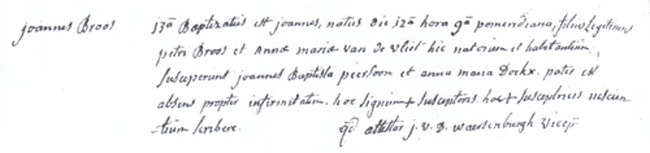 joannes Broos
13ā Baptizatus est joannes, natus die 12ā hora 9ā pomeridiana, filius legitimus
petri Broos et Annæ mariæ van de vliet hic natorum et habitantium,
susceperunt joannes Baptista peerloon et anna maria Dockx. pater est
absens propter infirmitatem. hoc signum + susceptoris. hoc + susceptricis nescien
-tium scribere. qd attestor j. v. D. waersenburgh vicep.